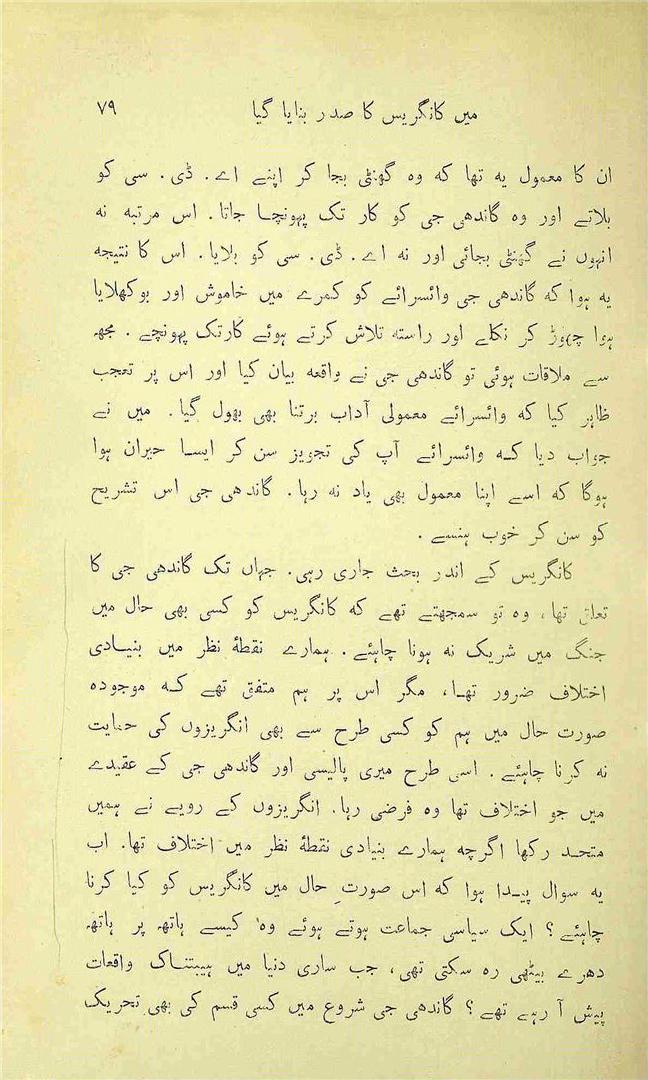 میں کانگریس کا صدر بنایا گیا ۷۹
ان کا معمول یہ تھا کہ وہ گھنٹی بجا کر اپنے اے۔ ڈی۔ سی کو
بلاتے اور وہ گاندھی جی کو کار تک پہونچا جاتا۔ اس مرتبہ نہ
انہوں نے گھنٹی بجائی اور نہ اے۔ ڈی۔ سی کو بلایا۔ اس کا نتیجہ
یہ ہوا کہ گاندھی جی وائسرائے کو کمرے میں خاموش اور بوکھلایا
ہوا چھوڑ کر نکلے اور راستہ تلاش کرتے ہوئے کارتک پہونچے۔ مجھہ
سے ملاقات ہوئی تو گاندھی جی نے واقعہ بیان کیا اور اس پر تعجب
ظاہر کیا کہ وائسرائے معمولی آداب برتنا بھی بھول گیا۔ میں نے
جواب دیا کہ وائسرائے آپ کی تجویز سن کر ایسا حیران ہوا
ہوگا کہ اسے اپنا معمول بھی یاد نہ رہا۔ گاندھی جی اس تشریح
کو سن کر خوب ہنسے۔
کانگریس کے اندر بحث جاری رہی۔ جہاں تک گاندھی جی کا
تعلق تھا، وہ تو سمجھتے تھے کہ کانگریس کو کسی بھی حال میں
جنگ میں شریک نہ ہونا چاہئے۔ ہمارے نقطۂ نظر میں بنیادی
اختلاف ضرور تھا، مگر اس پر ہم متفق تھے کہ موجودہ
صورت حال میں ہم کو کسی طرح سے بھی انگریزوں کی حمایت
نہ کرنا چاہئے۔ اسی طرح میری پالیسی اور گاندھی جی کے عقیدے
میں جو اختلاف تھا وہ فرضی رہا۔ انگریزوں کے رویے نے ہمیں
متحد رکھا اگرچہ ہمارے بنیادی نقطۂ نظر میں اختلاف تھا۔ اب
یہ سوال پیدا ہوا کہ اس صورتِ حال میں کانگریس کو کیا کرنا
چاہئے؟ ایک سیاسی جماعت ہوتے ہوئے وہ کیسے ہاتھہ پر ہاتھہ
دھرے بیٹھی رہ سکتی تھی، جب ساری دنیا میں ہیبتناک واقعات
پیش آ رہے تھے؟ گاندھی جی شروع میں کسی قسم کی بھی تحریک